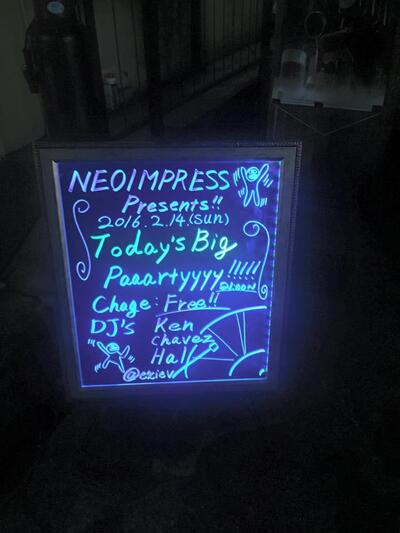 NEOIMPRESS
Presents!!
2016.2.14.(sun)
Today's Big
Paaartyyyy!!!!!
21:00~
Chage: Free!!
DJ's Ken
chavez
Hal
@eziev